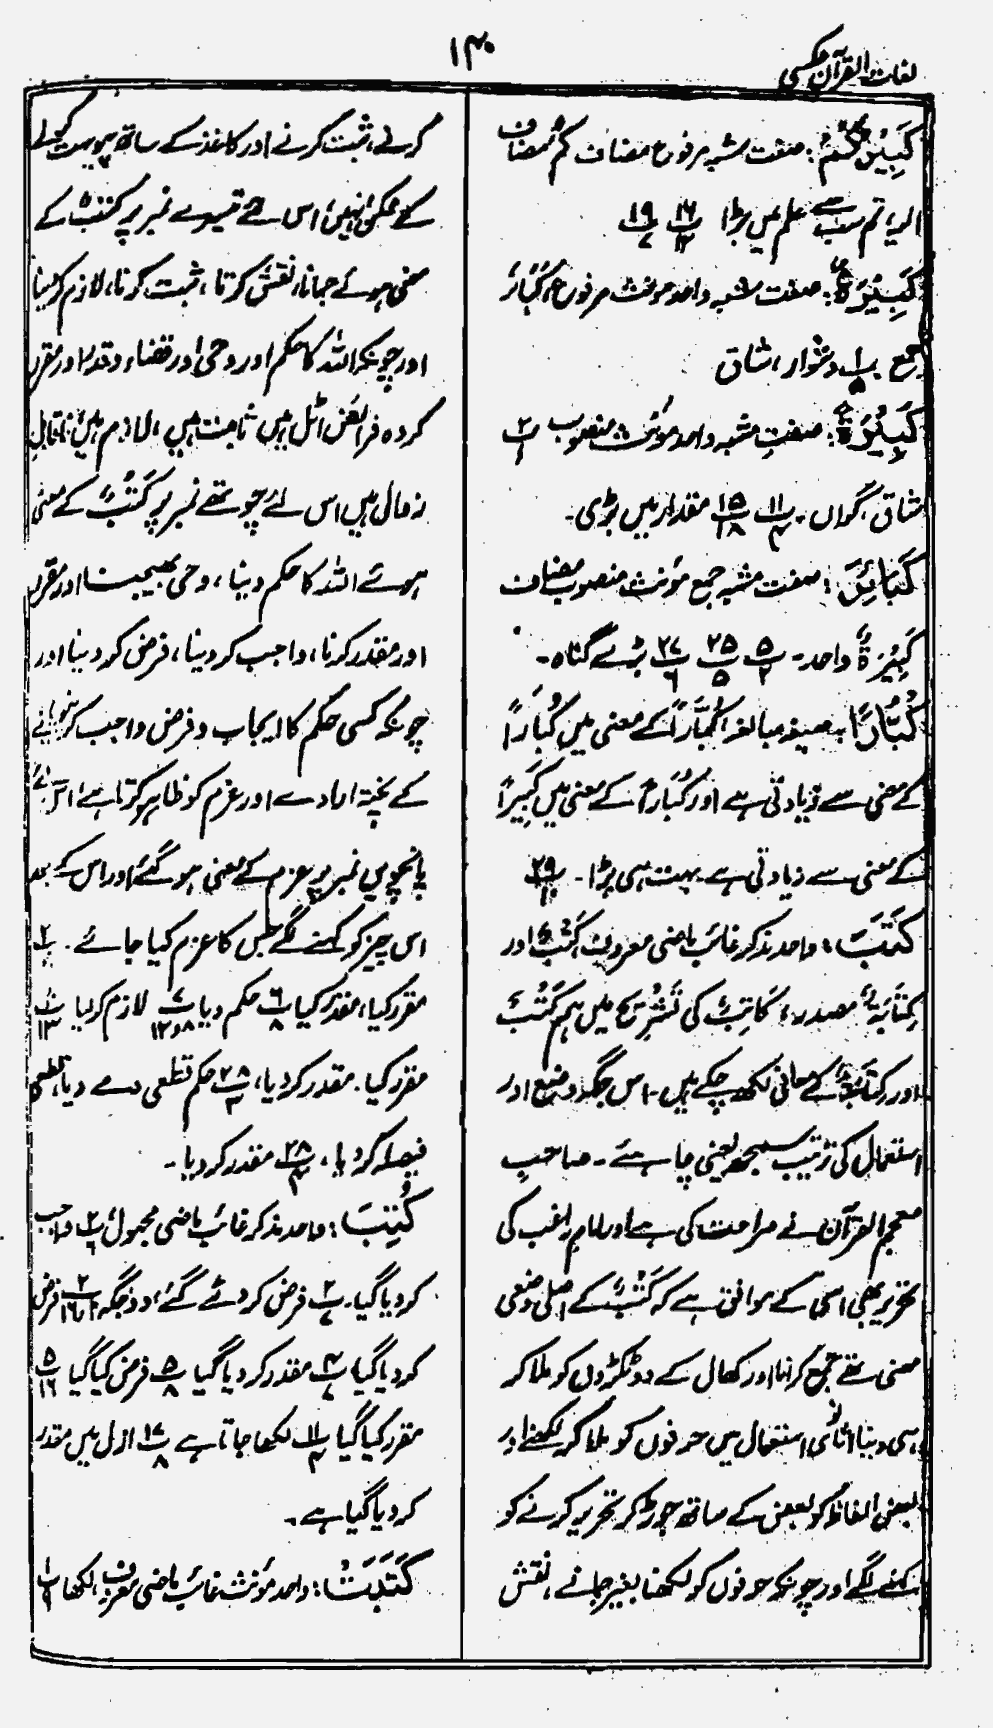 لغات القرآن عکسی
۱۴۰
کَبِیْرُکُمُ: صفت مشبہ مرفوع مضاف کم مضاف
الیہ، تم سب سے علم میں بڑا
کَبِیْرَۃٌ: صفت مشبہ واحد مونث مرفوع، کَبَائِر
جمع دشوار، شاق
کَبِیْرَۃً: صفت مشبہ واحد مؤنث منصوب
شاق، گراں۔ مقدار میں بڑی۔
کَبَائِرَ: صفت مشبہ جمع مؤنث منصوب مضاف
کَبِیْرَۃٌ واحد۔ بڑے گناہ۔
کُبَّارًا۔ صیغہ مبالغہ کُبَّارًا کے معنی میں کُبَارًا
کے معنی سے زیادتی ہے اور کُبَارٌ کے معنی میں کَبِیْرًا
کے معنی سے زیادتی ہے۔ بہت ہی بڑا۔
کَتَبَ: واحد مذکر غائب ماضی معروف کَتْبٌ اور
کِتَابَۃٌ مصدر، کَاتِبٌ کی تشریح میں ہم کَتْبٌ
اور کِتَابَۃٌ کے معانی لکھ چکے ہیں۔ اس جگہ وضع اور
استعمال کی ترتیب سمجھ لینی چاہئے۔ صاحبِ
معجم القرآن نے صراحت کی ہے اور امام راغب کی
تحریر بھی اسی کے موافق ہے کہ کَتْبٌ کے اصلی وضعی
معنی تھے جمع کرنا اور کھال کے دو ٹکڑوں کو ملا کر
سی دینا ثانوی استعمال میں حرفوں کو ملا کر لکھنے اور
بعض الفاظ کو بعض کے ساتھ جوڑ کر تحریر کرنے کو
کہنے لگے اور چونکہ حرفوں کو لکھنا بغیر جمانے، نقش
کرنے، ثبت کرنے اور کاغذ کے ساتھ پیوست کرنے
کے ممکن نہیں اس لئے تیسرے نمبر پر کَتْبٌ کے
معنی ہوئے جمانا، نقش کرنا، ثبت کرنا، لازم کر دینا
اور چونکہ اللہ کا حکم اور وحی اور قضاء و قدر اور مقرر
کردہ فرائض اٹل ہیں ثابت ہیں، لازم ہیں ناقابلِ
زوال ہیں اس لئے چوتھے نمبر پر کَتْبٌ کے معنی
ہوئے اللہ کا حکم دینا، وحی بھیجنا اور مقرر
اور مقدر کرنا، واجب کر دینا، فرض کر دینا اور
چونکہ کسی حکم کا ایجاب و فرض واجب کرنیوالے
کے پختہ ارادے اور عزم کو ظاہر کرتا ہے، اس لئے
پانچویں نمبر پر عزم کے معنی ہو گئے اور اس کے بعد
اس چیز کو کہنے لگے جس کا عزم کیا جائے۔
مقرر کیا، مقدر کیا حکم دیا لازم کر لیا
مقرر کیا۔ مقدر کر دیا، حکم قطعی دے دیا، قطعی
فیصلہ کر دیا، مقدر کر دیا۔
کُتِبَ: واحد مذکر غائب ماضی مجہول واجب
کر دیا گیا۔ فرض کر دئے گئے، دو جگہ فرض
کر دیا گیا مقدر کر دیا گیا فرض کیا گیا
مقرر کیا گیا لکھا جاتا ہے ازل میں مقدر
کر دیا گیا ہے۔
کَتَبَتْ: واحد مؤنث غائب ماضی معروف، لکھا